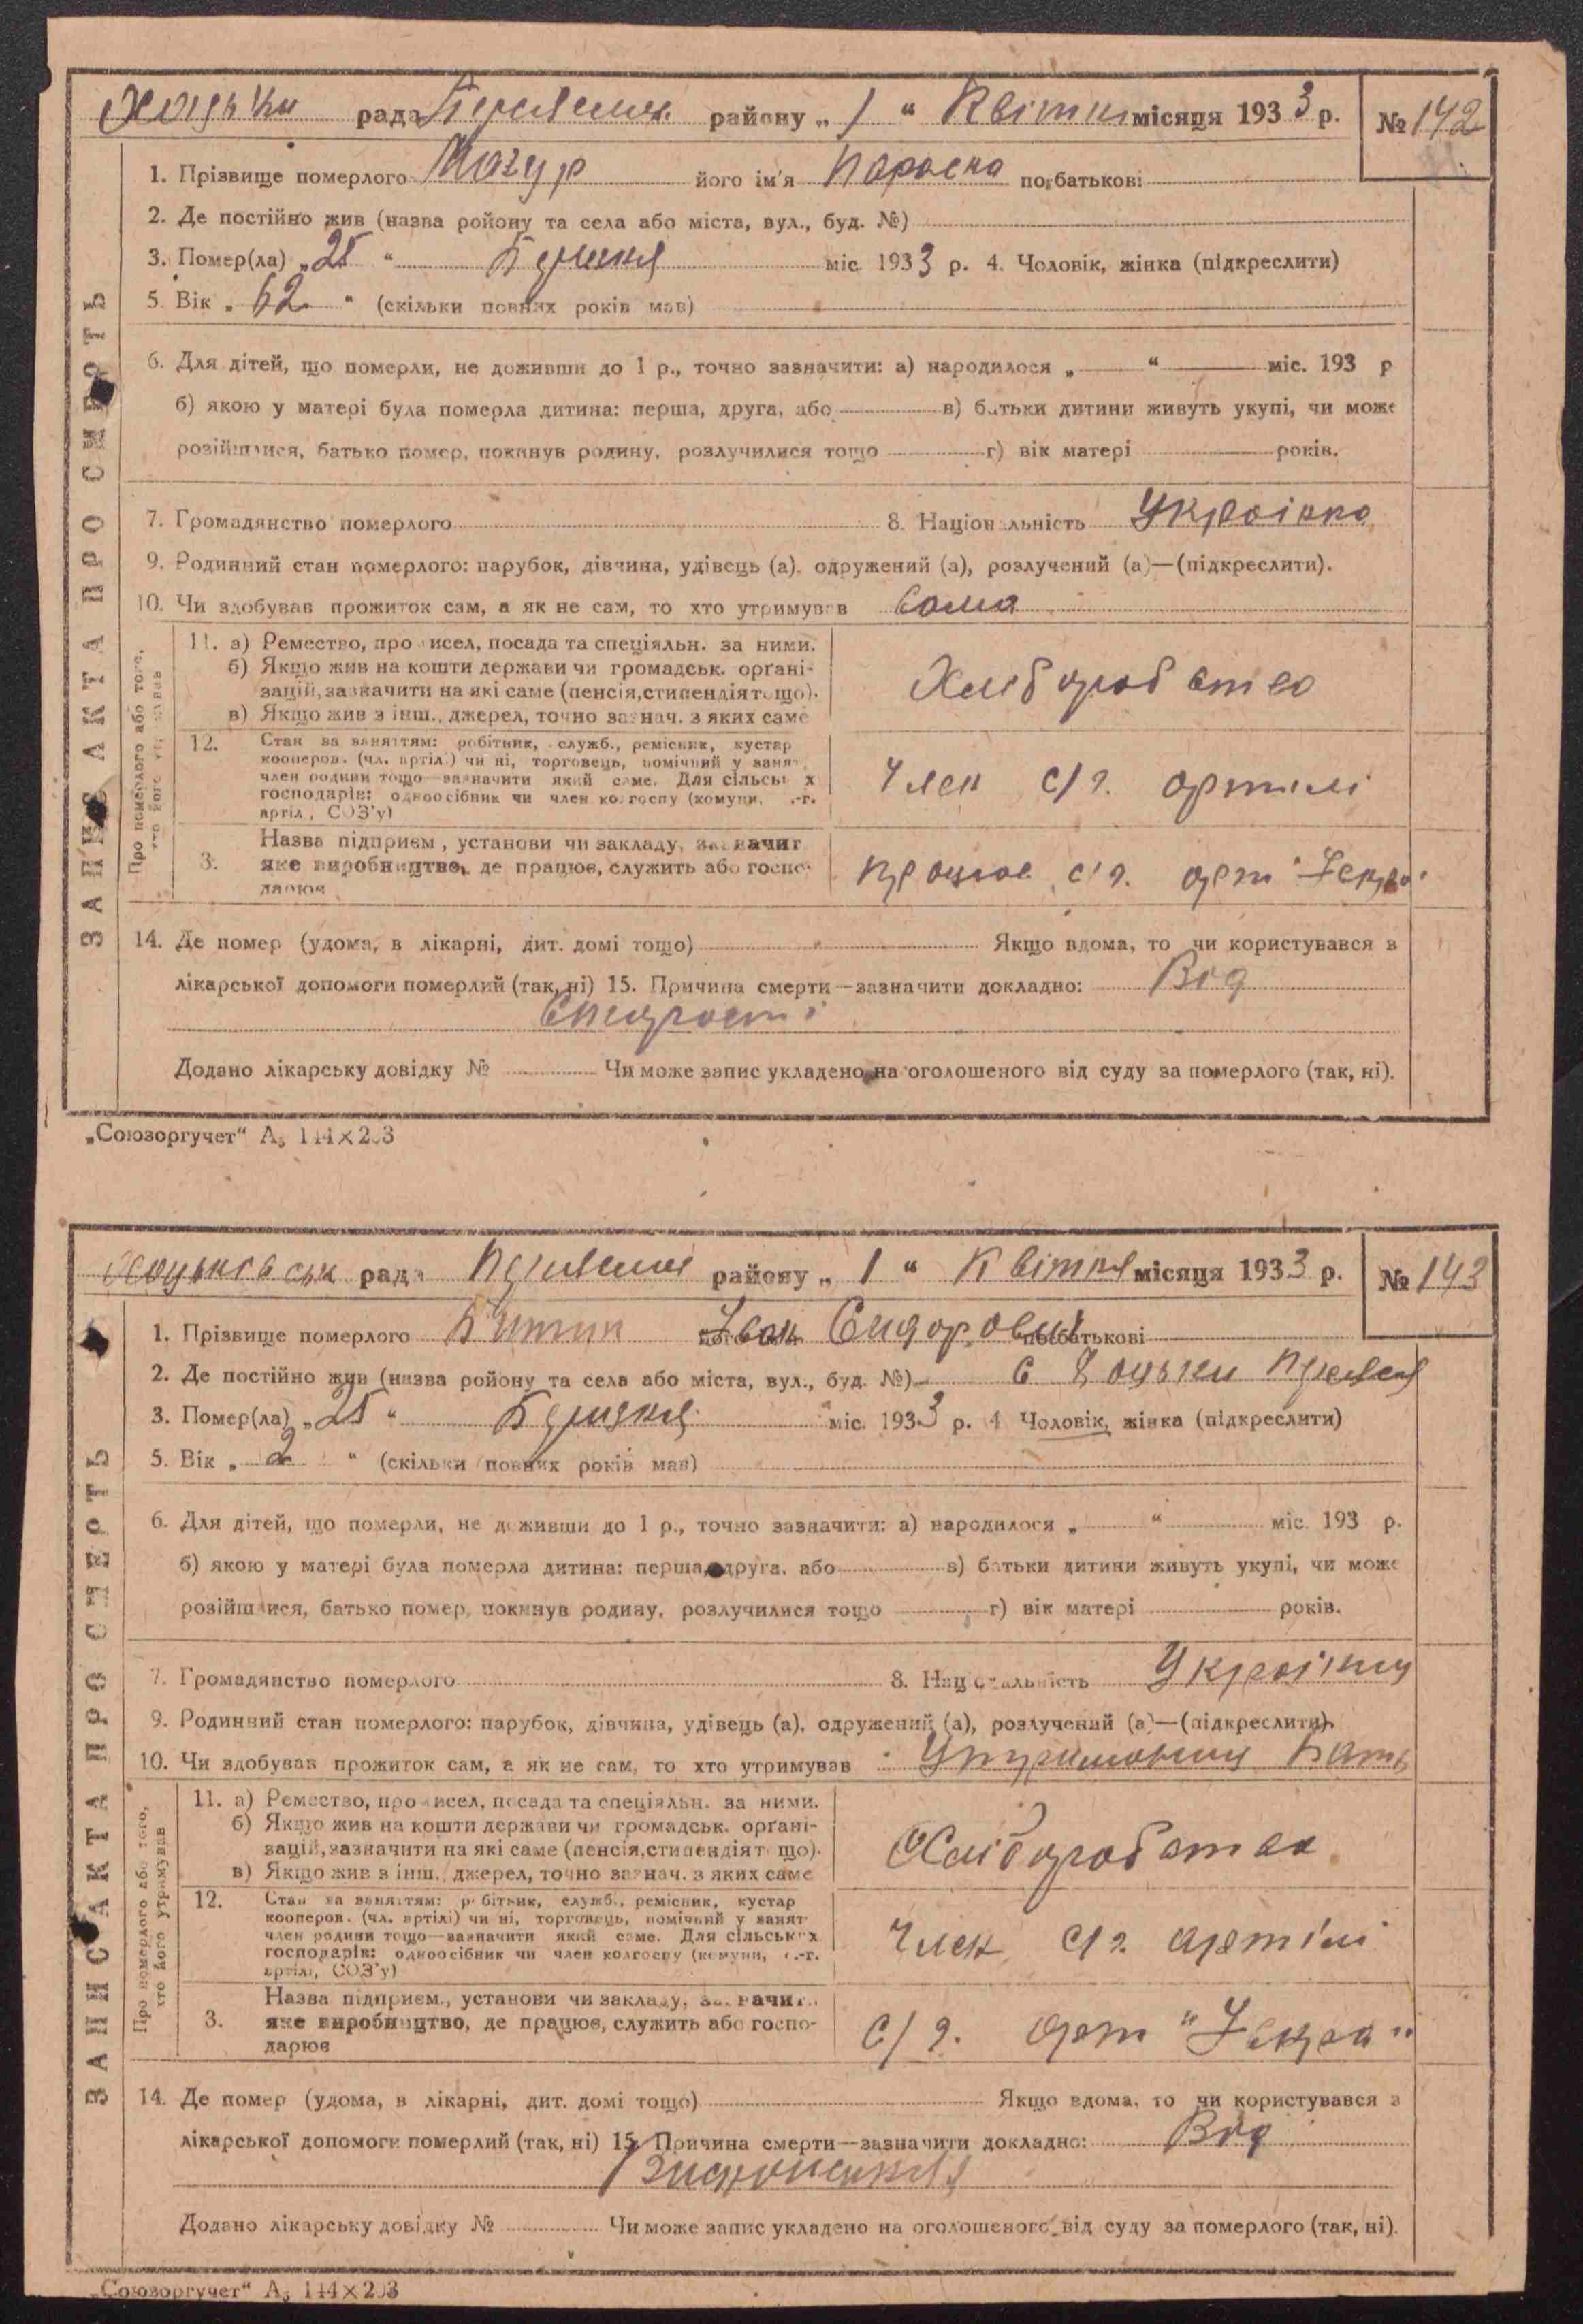 Хоцьки рада района „ 1 “ Квітня місяця 1933 р. № 142
ЗАПИС АКТА ПРО СМЕРТЬ
1. Прізвище померлого Мазур його ім'я Параска по батькові
2. Де постійно жив (назва ройону та села або міста, вул., буд. №)
3. Помер(ла) „25“ Березня міс. 1933 р. 4. Чоловік, жінка (підкреслити)
5. Вік „ 62 “ (скільки повних років мав)
6. Для дітей, що померли, не доживши до 1 р., точно зазначити: а) народилося „ “ міс. 193 р
б) якою у матері була померла дитина: перша, друга, або в) батьки дитини живуть укупі, чи може
розійшлися, батько помер, покинув родину, розлучилися тощо г) вік матері років.
7. Громадянство померлого 8. Національність Українка
9. Родинний стан померлого: парубок, дівчина, удівець (а), одружений (а), розлучений (а)—(підкреслити).
10. Чи здобував прожиток сам, а як не сам, то хто утримував Сама
Про померлого або того, хто його утримував
11. а) Ремество, промисел, посада та спеціяльн. за ними.
б) Якщо жив на кошти держави чи громадськ. орґані-
зацій, зазначити на які саме (пенсія, стипендія тощо).
в) Якщо жив з інш., джерел, точно зазнач. з яких саме
Хліборобство
12. Стан за заняттям: робітник, служб., ремісник, кустар
кооперов. (чл. артілі) чи ні, торговець, помічний у занят.
член родини тощо—зазначити який саме. Для сільських
господарів: одноосібник чи член колгоспу (комуни, с.-г.
артіл., СОЗ'у)
Член с/г. артілі
3. Назва підприєм., установи чи закладу, зазначит
яке виробництво, де працює, служить або госпо-
дарює
працює с/г. арт "Іскра"
14. Де помер (удома, в лікарні, дит. домі тощо) Якщо вдома, то чи користувався з
лікарської допомоги померлий (так, ні) 15. Причина смерти—зазначити докладно: Від
Старості
Додано лікарську довідку № Чи може запис укладено на оголошеного від суду за померлого (так, ні).
„Союзоргучет“ А₅ 144×203
Хоцьківськ рада района „ 1 “ Квітня місяця 1933 р. № 143
ЗАПИС АКТА ПРО СМЕРТЬ
1. Прізвище померлого його ім'я Іван Сидорович по батькові
2. Де постійно жив (назва ройону та села або міста, вул., буд. №) С Хоцьки
3. Помер(ла) „25“ Березня міс. 1933 р. 4 Чоловік, жінка (підкреслити)
5. Вік „ 2 “ (скільки повних років мав)
6. Для дітей, що померли, не доживши до 1 р., точно зазначити: а) народилося „ “ міс. 193 р.
б) якою у матері була померла дитина: перша, друга, або в) батьки дитини живуть укупі, чи може
розійшлися, батько помер, покинув родину, розлучилися тощо г) вік матері років.
7. Громадянство померлого 8. Національність Українец
9. Родинний стан померлого: парубок, дівчина, удівець (а), одружений (а), розлучений (а)—(підкреслити).
10. Чи здобував прожиток сам, а як не сам, то хто утримував
Про померлого або того, хто його утримував
11. а) Ремество, промисел, посада та спеціяльн. за ними.
б) Якщо жив на кошти держави чи громадськ. орґані-
зацій, зазначити на які саме (пенсія, стипендія тощо).
в) Якщо жив з інш., джерел, точно зазнач. з яких саме
Хліборобство
12. Стан за заняттям: робітник, служб., ремісник, кустар
кооперов. (чл. артілі) чи ні, торговець, помічний у занят
член родини тощо—зазначити який саме. Для сільських
господарів: одноосібник чи член колгоспу (комуни, с.-г.
артілі, СОЗ'у)
Член с/г. артілі
3. Назва підприєм., установи чи закладу, зазначит.
яке виробництво, де працює, служить або госпо-
дарює
с/г. арт "Іскра"
14. Де помер (удома, в лікарні, дит. домі тощо) Якщо вдома, то чи користувався з
лікарської допомоги померлий (так, ні) 15. Причина смерти—зазначити докладно: Від
Виснаження
Додано лікарську довідку № Чи може запис укладено на оголошеного від суду за померлого (так, ні).
„Союзоргучет“ А₅ 144×203